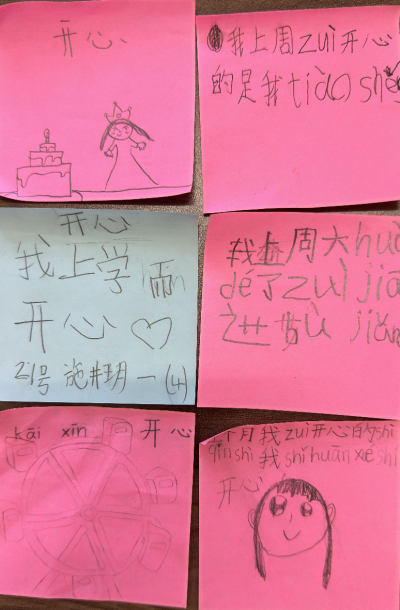 开心
我上周zuì开心
的是我tiào shé
开心
我上学
开心
21号 施 一(4)
我上周六huà
dé了zuì jiā
kāi xīn 开心
个月我zuì开心的shì
qīn shì 我shǐhuān xiě shì
开心